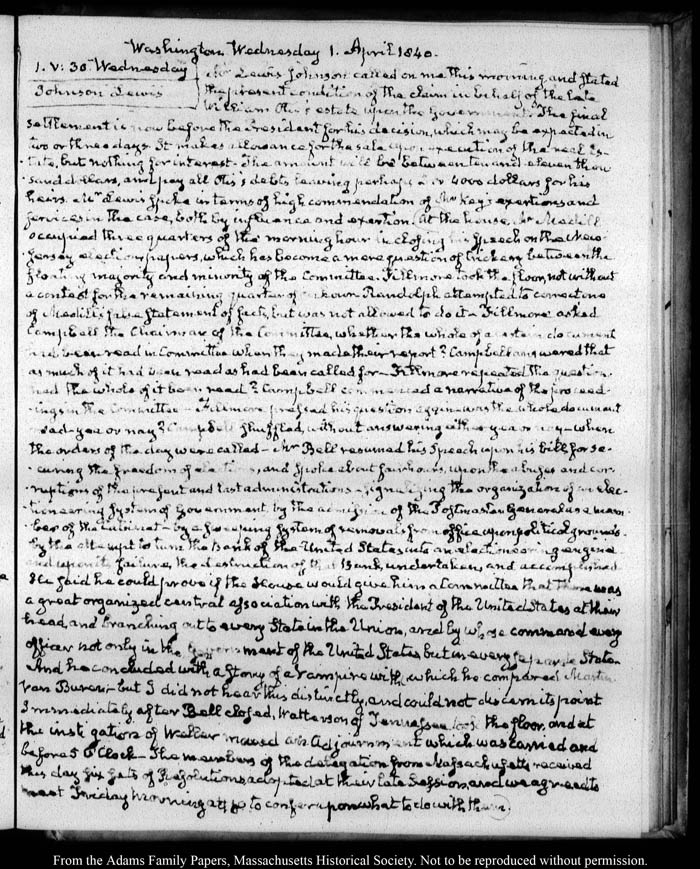 Washington Wednesday 1. April 1840.
1. V: 30 Wednesday
Johnson Lewis
Mr Lewis Johnson called on me this morning and stated
the present condition of the claim in behalf of the late
William Otis's estate upon the Government. The final
settlement is now before the President for his decision, which may be expected in
two or three days. It makes allowance for the sale upon execution of the real Es-
tate, but nothing for interest. The amount will be between ten and eleven thou-
sand dollars, and pay all Otis's debts leaving perhaps 4000 dollars for his
heirs. Mr Lewis spoke in terms of high commendation of Mr Key's exertions and
services in the case, both by influence and exertion. At the house, Mr Medill
occupied three quarters of the morning hour in closing his Speech on the New-
Jersey election papers, which has become a mere question of trickery between the
floating majority and minority of the Committee. Fillmore took the floor, not without
a contest for the remaining quarter of an hour. Randolph attempted to correct one
of Medill's false statement of fact, but was not allowed to do it. Fillmore asked
Campbell the Chairman of the Committee, whether the whole of a certain document
had been read in Committee when they made their report? Campbell answered that
as much of it had been read as had been called for. Fillmore repeated the question.
had the whole of it been read? Campbell commenced a narrative of the proceed-
ings in the Committee. Fillmore pressed his question again. was the whole document
read. yea or nay? Campbell shuffled, without answering either yea or nay. when
the orders of the day were called. Mr Bell resumed his Speech upon his bill for se-
curing the freedom of elections, and spoke about four hours, upon the abuses and cor-
ruptions of the present and last administrations. signalizing the organization of an elec-
tioneering System of Government, by the admission of the Postmaster General as a mem-
ber of the Cabinet. by a sweeping System of removals from office upon political grounds.
by the attempt to turn the Bank of the United States into an electioneering engine.
and upon its failure, the destruction of that Bank, undertaken, and accomplished.
He said he could prove if the House would give him a Committee that there was
a great organized central association with the President of the United States at their
head, and branching out to every State in the Union, and by whose command every
officer not only in the Government of the United States but in every separate State.
And he concluded with a Story of a vampire with which he compared Martin
Van Buren. but I did not hear this distinctly, and could not discern its point
Immediately after Bell closed, Watterson of Tennessee took the floor, and at
the instigation of Weller moved an Adjournment which was carried and
before 5 O'Clock. The members of the delegation from Massachusetts received
this day six sets of Resolutions adopted at their late Session, and we agreed to
meet Friday Morning at to confer upon what to do with them
From the Adams Family Papers, Massachusetts Historical Society. Not to be reproduced without permission.